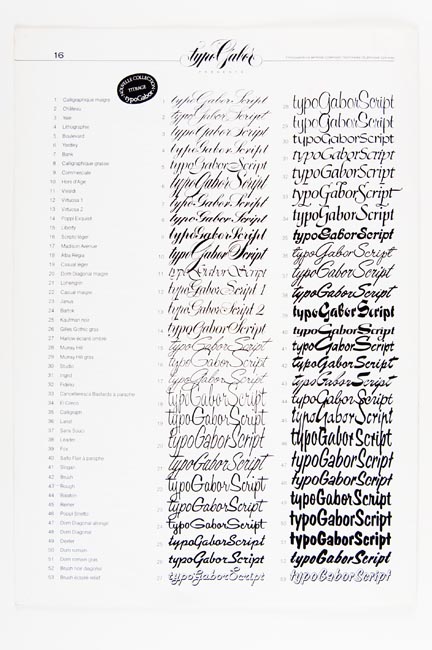 16
typoGabor
NOUVELLE COLLECTION
TITRAGE
typoGabor
1 Calligraphique maigre
2 Château
3 Year
4 Lithographie
5 Boulevard
6 Yardley
7 Bank
8 Calligraphique grasse
9 Commerciale
10 Hors d'Age
11 Vivaldi
12 Virtuosa 1
13 Virtuosa 2
14 Poppl Exquisit
15 Liberty
16 Scripto léger
17 Madison Avenue
18 Alba Regia
19 Casual léger
20 Dom Diagonal maigre
21 Lohengrin
22 Casual maigre
23 Janus
24 Bartók
25 Kaufman noir
26 Gilles Gothic gras
27 Harlow éclairé ombré
28 Murray Hill
29 Murray Hill gras
30 Studio
31 Ingrid
32 Fidelio
33 Cancelleresca Bastarda à paraphe
34 El Greco
35 Calligraph
36 Landi
37 Sans Souci
38 Leader
39 Fox
40 Salto Flair à paraphe
41 Slogan
42 Brush
43 Rough
44 Balaton
45 Reiner
46 Poppl Stretto
47 Dom Diagonal allongé
48 Dom Diagonal
49 Dexter
50 Dom romain
51 Dom romain gras
52 Brush noir diagonal
53 Brush éclairé relief
1 typoGaborScript
2 typoGaborScript
3 typoGaborScript
4 typoGaborScript
5 typoGaborScript
6 typoGaborScript
7 typoGaborScript
8 typoGaborScript
9 typoGaborScript
10 typoGaborScript
11 typoGaborScript
12 typoGaborScript 1
13 typoGaborScript 2
14 typoGaborScript
15 typoGaborScript
16 typoGaborScript
17 typoGaborScript
18 typoGaborScript
19 typoGaborScript
20 typoGaborScript
21 typoGaborScript
22 typoGaborScript
23 typoGaborScript
24 typoGaborScript
25 typoGaborScript
26 typoGaborScript
27 typoGaborScript
28 typoGaborScript
29 typoGaborScript
30 typoGaborScript
31 typoGaborScript
32 typoGaborScript
33 typoGaborScript
34 typoGaborScript
35 typoGaborScript
36 typoGaborScript
37 typoGaborScript
38 typoGaborScript
39 typoGaborScript
40 typoGaborScript
41 typoGaborScript
42 typoGaborScript
43 typoGaborScript
44 typoGaborScript
45 typoGaborScript
46 typoGaborScript
47 typoGaborScript
48 typoGaborScript
49 typoGaborScript
50 typoGaborScript
51 typoGaborScript
52 typoGaborScript
53 typoGaborScript